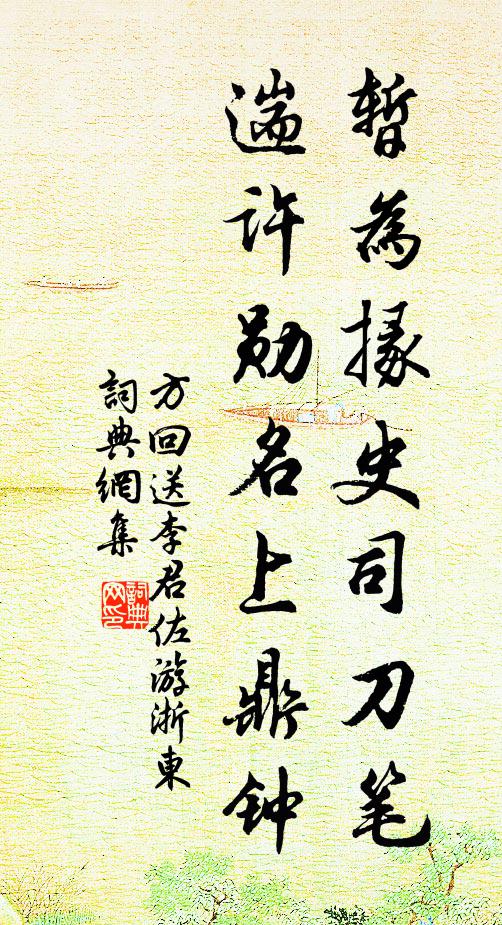 暫為掾史司刀笔
遄许勋名上鼎钟
方回送李君佐游浙東
詞典網集
詞典
网印